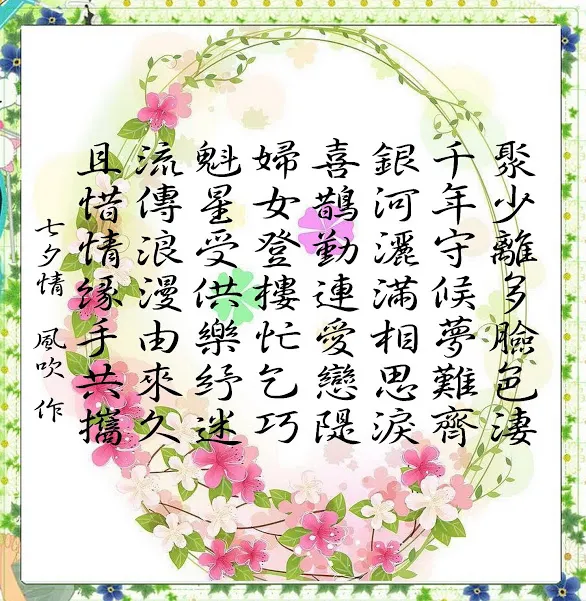 聚少離多臉色淒
千年守候夢難齊
銀河灑滿相思淚
喜鵲勤連愛戀隄
婦女登樓忙乞巧
魁星受供樂紓迷
流傳浪漫由來久
且惜情緣手共攜
七夕情 風吹 作